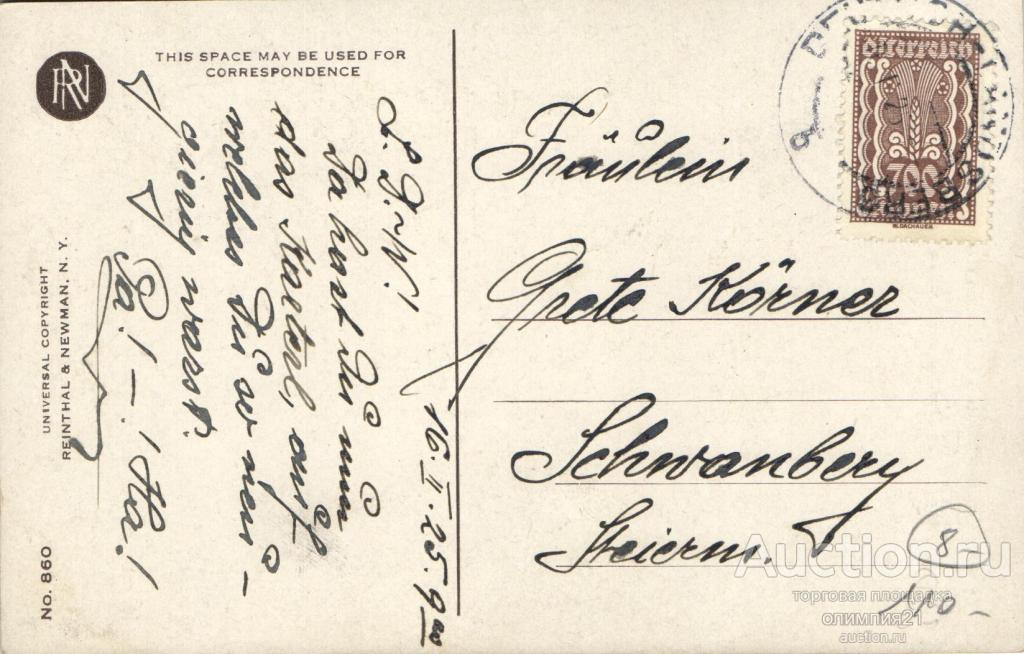 THIS SPACE MAY BE USED FOR
CORRESPONDENCE
RN
UNIVERSAL COPYRIGHT
REINTHAL & NEWMAN, N. Y.
No. 860
16. II. 25. 9
Da hast Du nun
das Karterl, auf
welches Du so neu-
gierig warst.
! – ! Ha!
Fräulein
Grete Körner
Schwanberg
Steierm.
Österreich
700
R.DACHAUER
8-
Auction.ru
торговая площадка
олимпия21
auction.ru